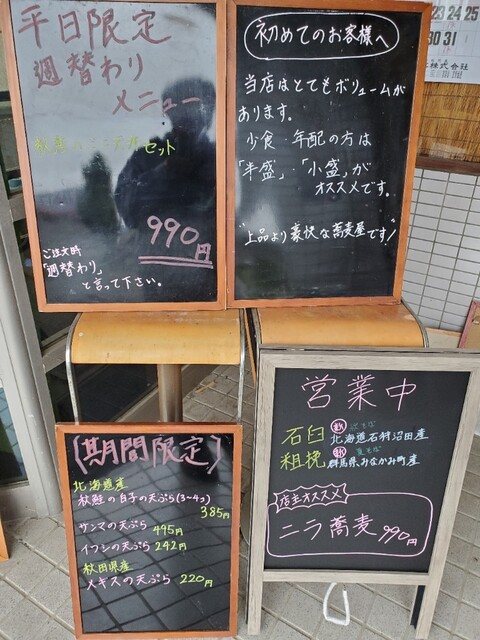 平日限定
週替わり
メニュー
セット
990円
ご注文時
「週替わり」
と言って下さい。
初めてのお客様へ
当店はとてもボリュームが
あります。
少食・年配の方は
「半盛」・「小盛」が
オススメです。
"上品より豪快な蕎麦屋です!"
23 24 25
30 31
株式会社
(期間限定)
北海道産
秋鮭の白子の天ぷら(3~4コ)
385円
サンマの天ぷら 495円
イワシの天ぷら 242円
秋田県産
メギスの天ぷら 220円
営業中
石臼 北海道石狩沼田産
粗挽 群馬県みなかみ町産
店主オススメ
ニラ蕎麦 990円